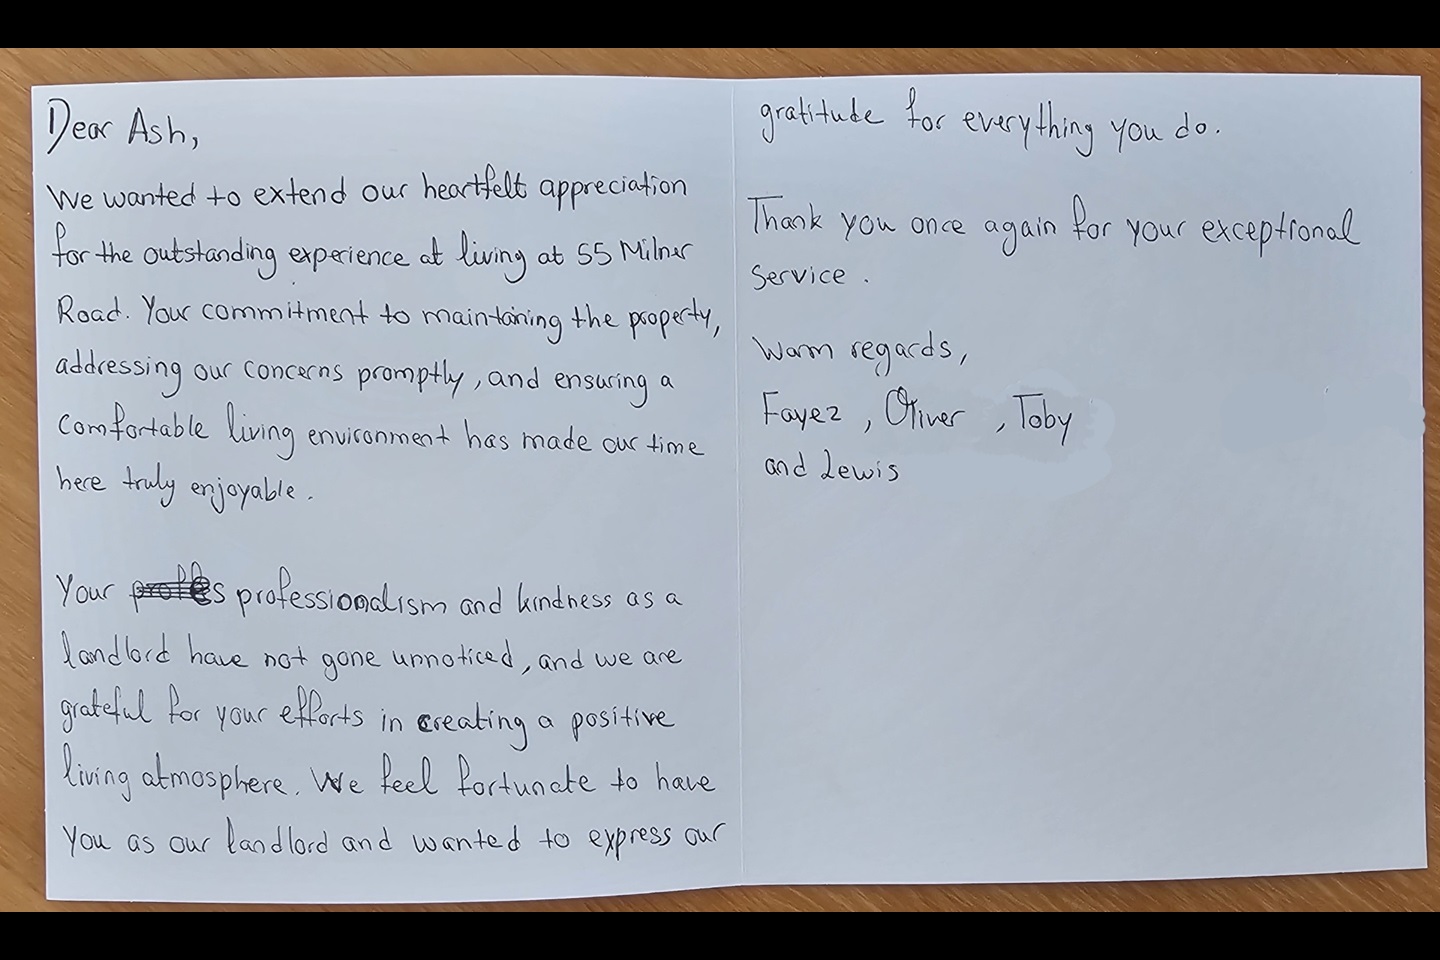 Dear Ash,
We wanted to extend our heartfelt appreciation
for the outstanding experience at living at 55 Milner
Road. Your commitment to maintaining the property,
addressing our concerns promptly, and ensuring a
comfortable living environment has made our time
here truly enjoyable.
Your professionalism and kindness as a
landlord have not gone unnoticed, and we are
grateful for your efforts in creating a positive
living atmosphere. We feel fortunate to have
you as our landlord and wanted to express our
gratitude for everything you do.
Thank you once again for your exceptional
service.
Warm regards,
Fayez, Oliver, Toby
and Lewis